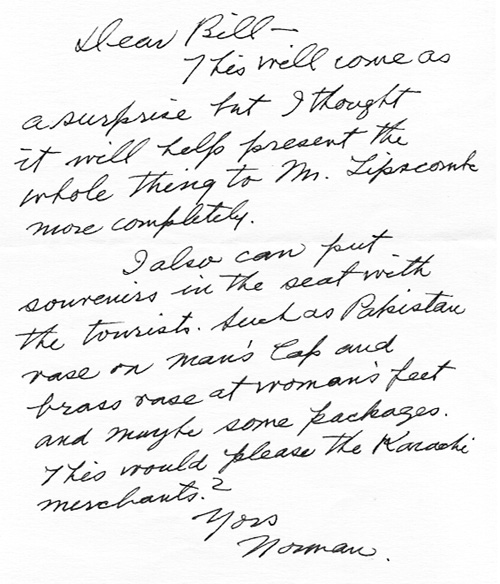 Dear Bill—
This will come as
a surprise but I thought
it will help present the
whole thing to Mr. Lipscomb
more completely.
I also can put
souvenirs in the seat with
the tourists. Such as Pakistan
vase on man's lap and
brass vase at woman's feet
and maybe some packages.
This would please the Karachi
merchants.?
Yors
Norman.